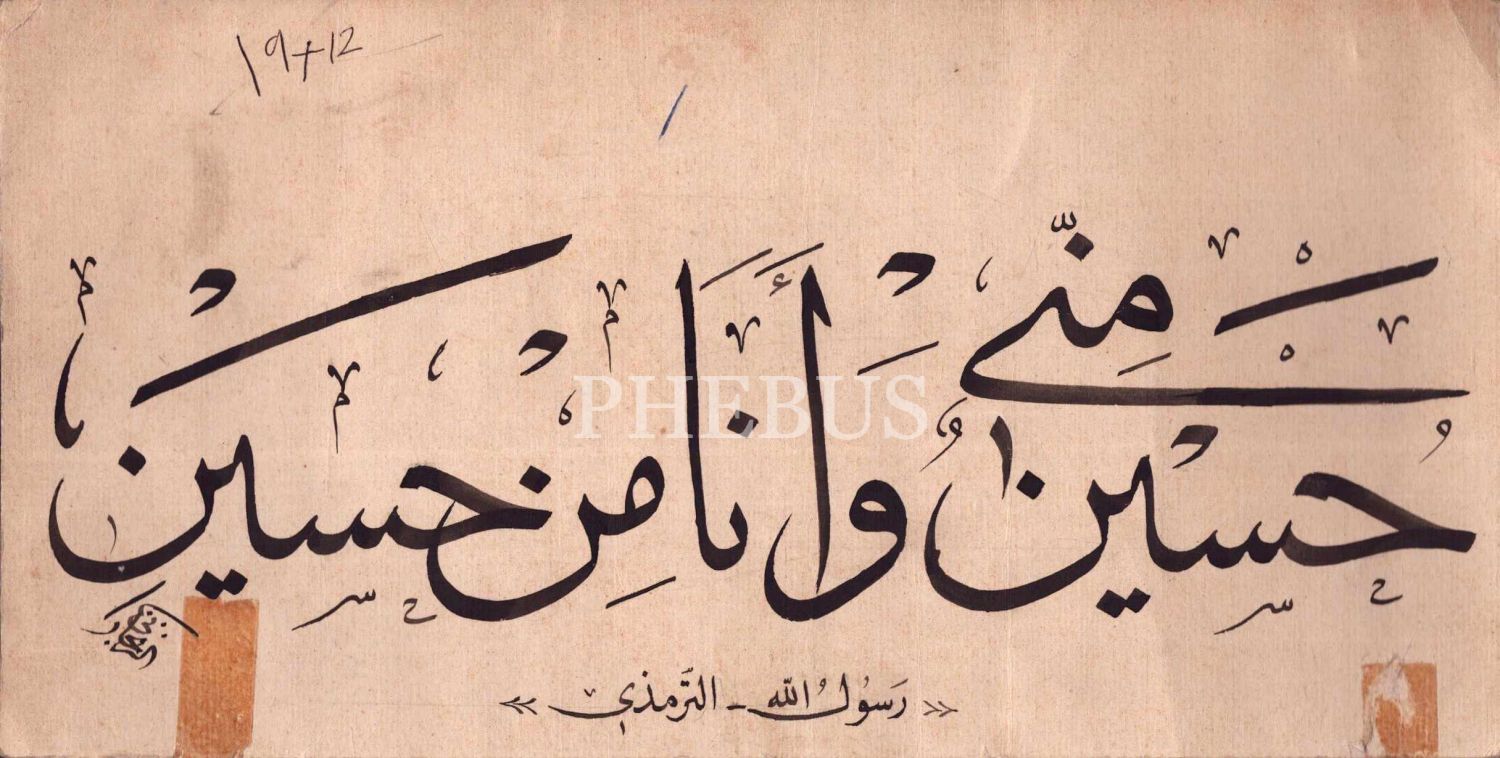 19+12
حُسَيْنٌ مِنِّي وَأَنَا مِنْ حُسَيْنٍ
PHEBUS
« رَسُولُ اللّٰه - التَّرمذي »